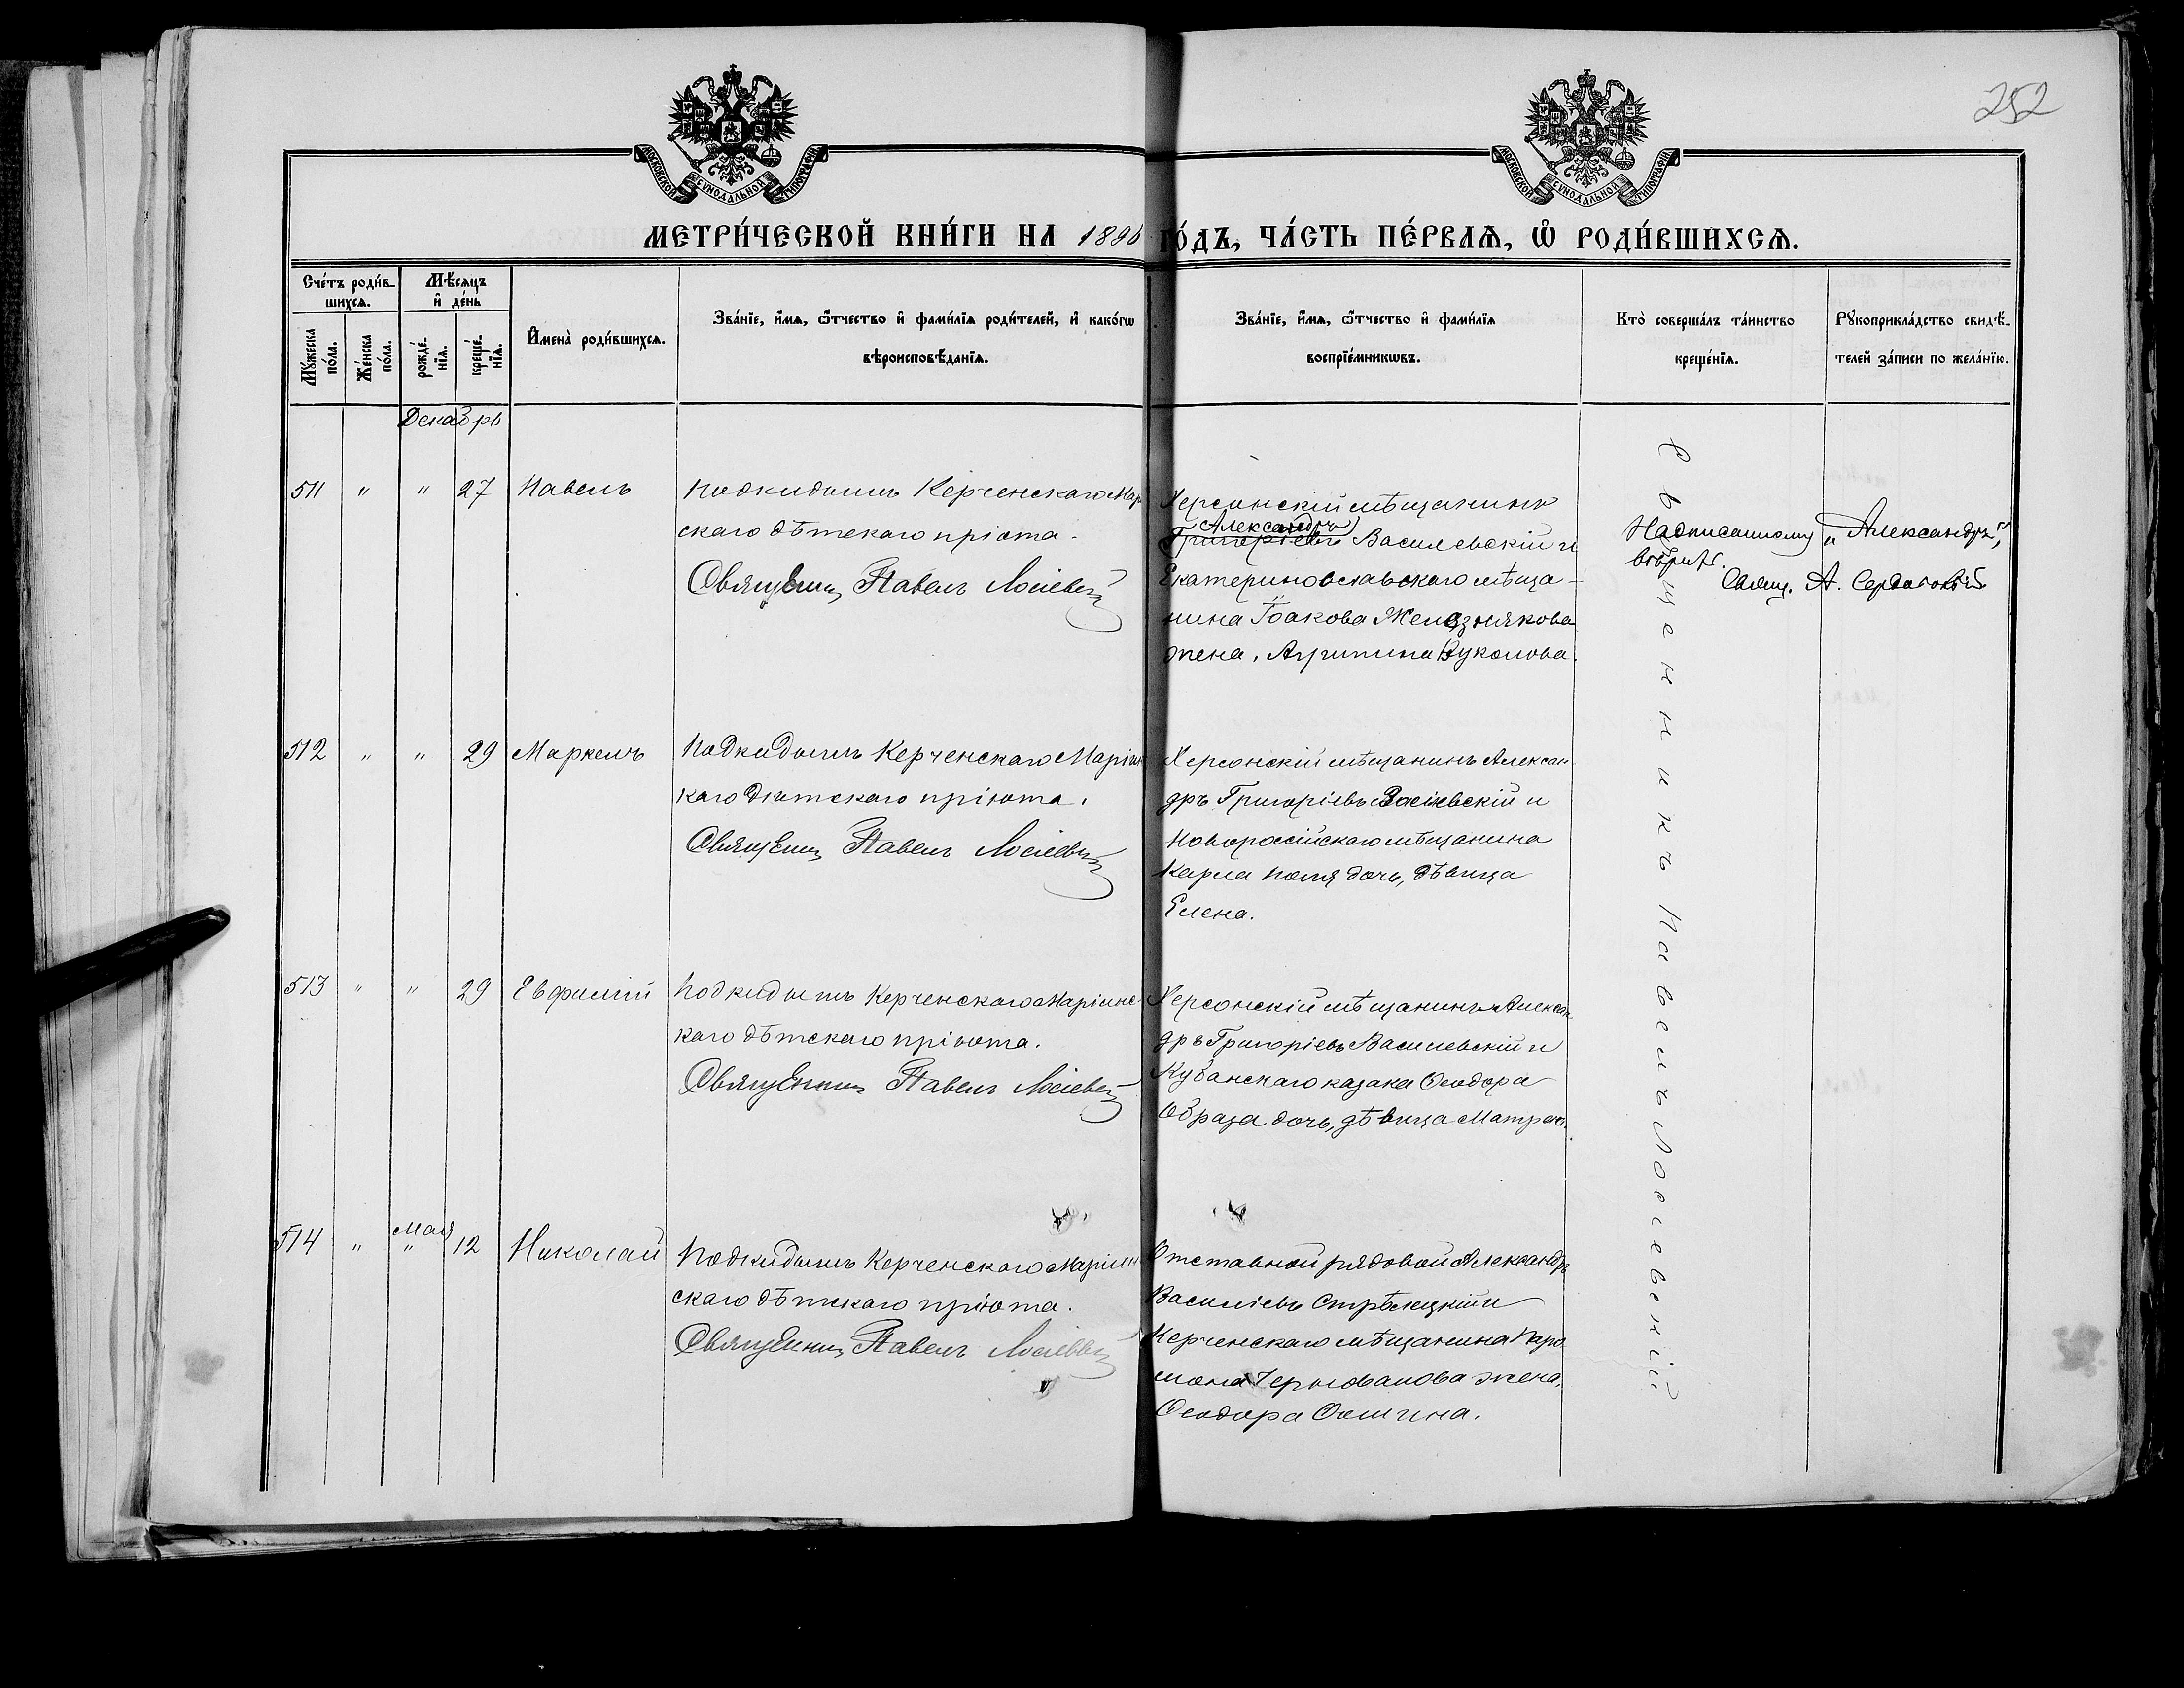 252
МОСКОВСКОЙ СУНОДАЛЬНОЙ ТИПОГРАФІИ
МОСКОВСКОЙ СУНОДАЛЬНОЙ ТИПОГРАФІИ
МЕТРИ́ЧЕСКОЙ КНИ́ГИ НА 1890 ГО́ДЪ, ЧА́СТЬ ПЕ́РВАѦ, Ѡ РОДИ́ВШИХСѦ.
Сче́тъ роди́в-
шихсѧ.
Мѣ́сѧцъ
и҆ де́нь
Мꙋ́жеска
по́ла.
Же́нска
по́ла.
рожде́-
нїѧ.
креще́-
нїѧ.
И҆мена̀ роди́вшихсѧ.
Зва́нїе, и҆́мѧ, ѻ҆́тчество и҆ фами́лїѧ роди́телей, и҆ како́гѡ
вѣроисповѣ́данїѧ.
Зва́нїе, и҆́мѧ, ѻ҆́тчество и҆ фами́лїѧ
воспрїе́мникѡвъ.
Кто̀ соверша́лъ та́инство
креще́нїѧ.
Рꙋкоприкла́дство свидѣ́-
телей за́писи по жела́нїю.
Декабрь
511 " " 27 Павелъ
Подкидышъ Керченскаго Мар
скаго дѣтскаго пріюта.
Священ. Павелъ Лосіевскій
Херсонскій мѣщанинъ
Александръ
Григоріевъ Василевскій и
Екатеринославскаго мѣща-
нина Іоакова Желѣзнякова
жена, Агрипина Вуколова.
Надписанному „Александръ"
вѣрить.
Свящ. А. Сердобовъ
512 " " 29 Маркелъ
Подкидышъ Керченскаго Маріин
каго дѣтскаго пріюта.
Священ. Павелъ Лосіевскій
Херсонскій мѣщанинъ Алексан
дръ Григоріевъ Василевскій и
Новороссійскаго мѣщанина
Карла Поля дочь, дѣвица
Елена.
513 " " 29 Евфимій
Подкидышъ Керченскаго Маріинс-
каго дѣтскаго пріюта.
Священникъ Павелъ Лосіевскій
Херсонскій мѣщанинъ Алексан
дръ Григоріевъ Василевскій и
Кубанскаго казака Ѳеодора
Образа дочь, дѣвица Матрона.
Мая
514 " " 12 Николай
Подкидышъ Керченскаго Маріин
скаго дѣтскаго пріюта.
Священниц Павелъ Лосіевскій
Отставной рядовой Александръ
Василіевъ Стрѣлецкій и
Керченскаго мѣщанина Паро
мона жена,
Ѳеодора Ѳомина.
Священникъ Павелъ Лосіевскій